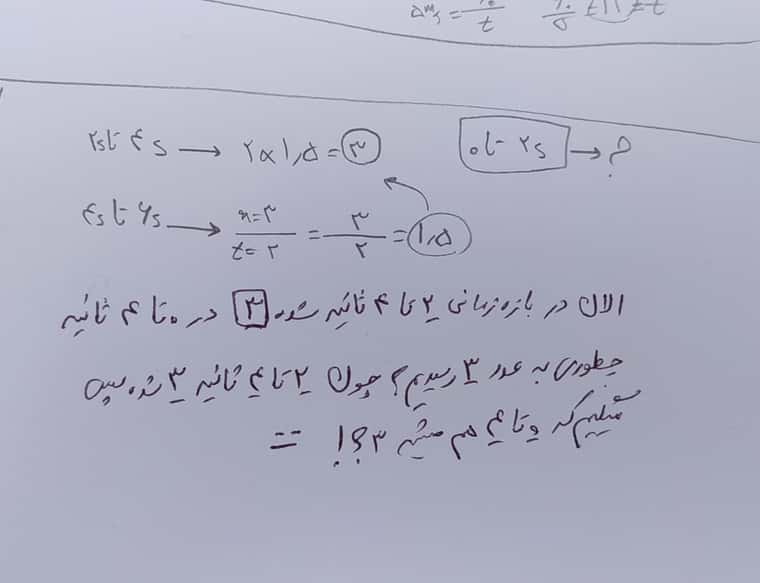 ۲s تا ۴s → ۲×۱٫۵=۳
۰ تا ۲s → ?
۴s تا ۶s → x=۳ / t=۲ = ۳/۲ = ۱٫۵
الان در بازه زمانی ۲ تا ۴ ثانیه شده ۳ در ۰ تا ۴ ثانیه
چطوری به عدد ۳ رسیدیم؟ چون ۲ تا ۴ ثانیه ۳ شده پس
میگیم که ۰ تا ۴ هم میشه ۳؟!